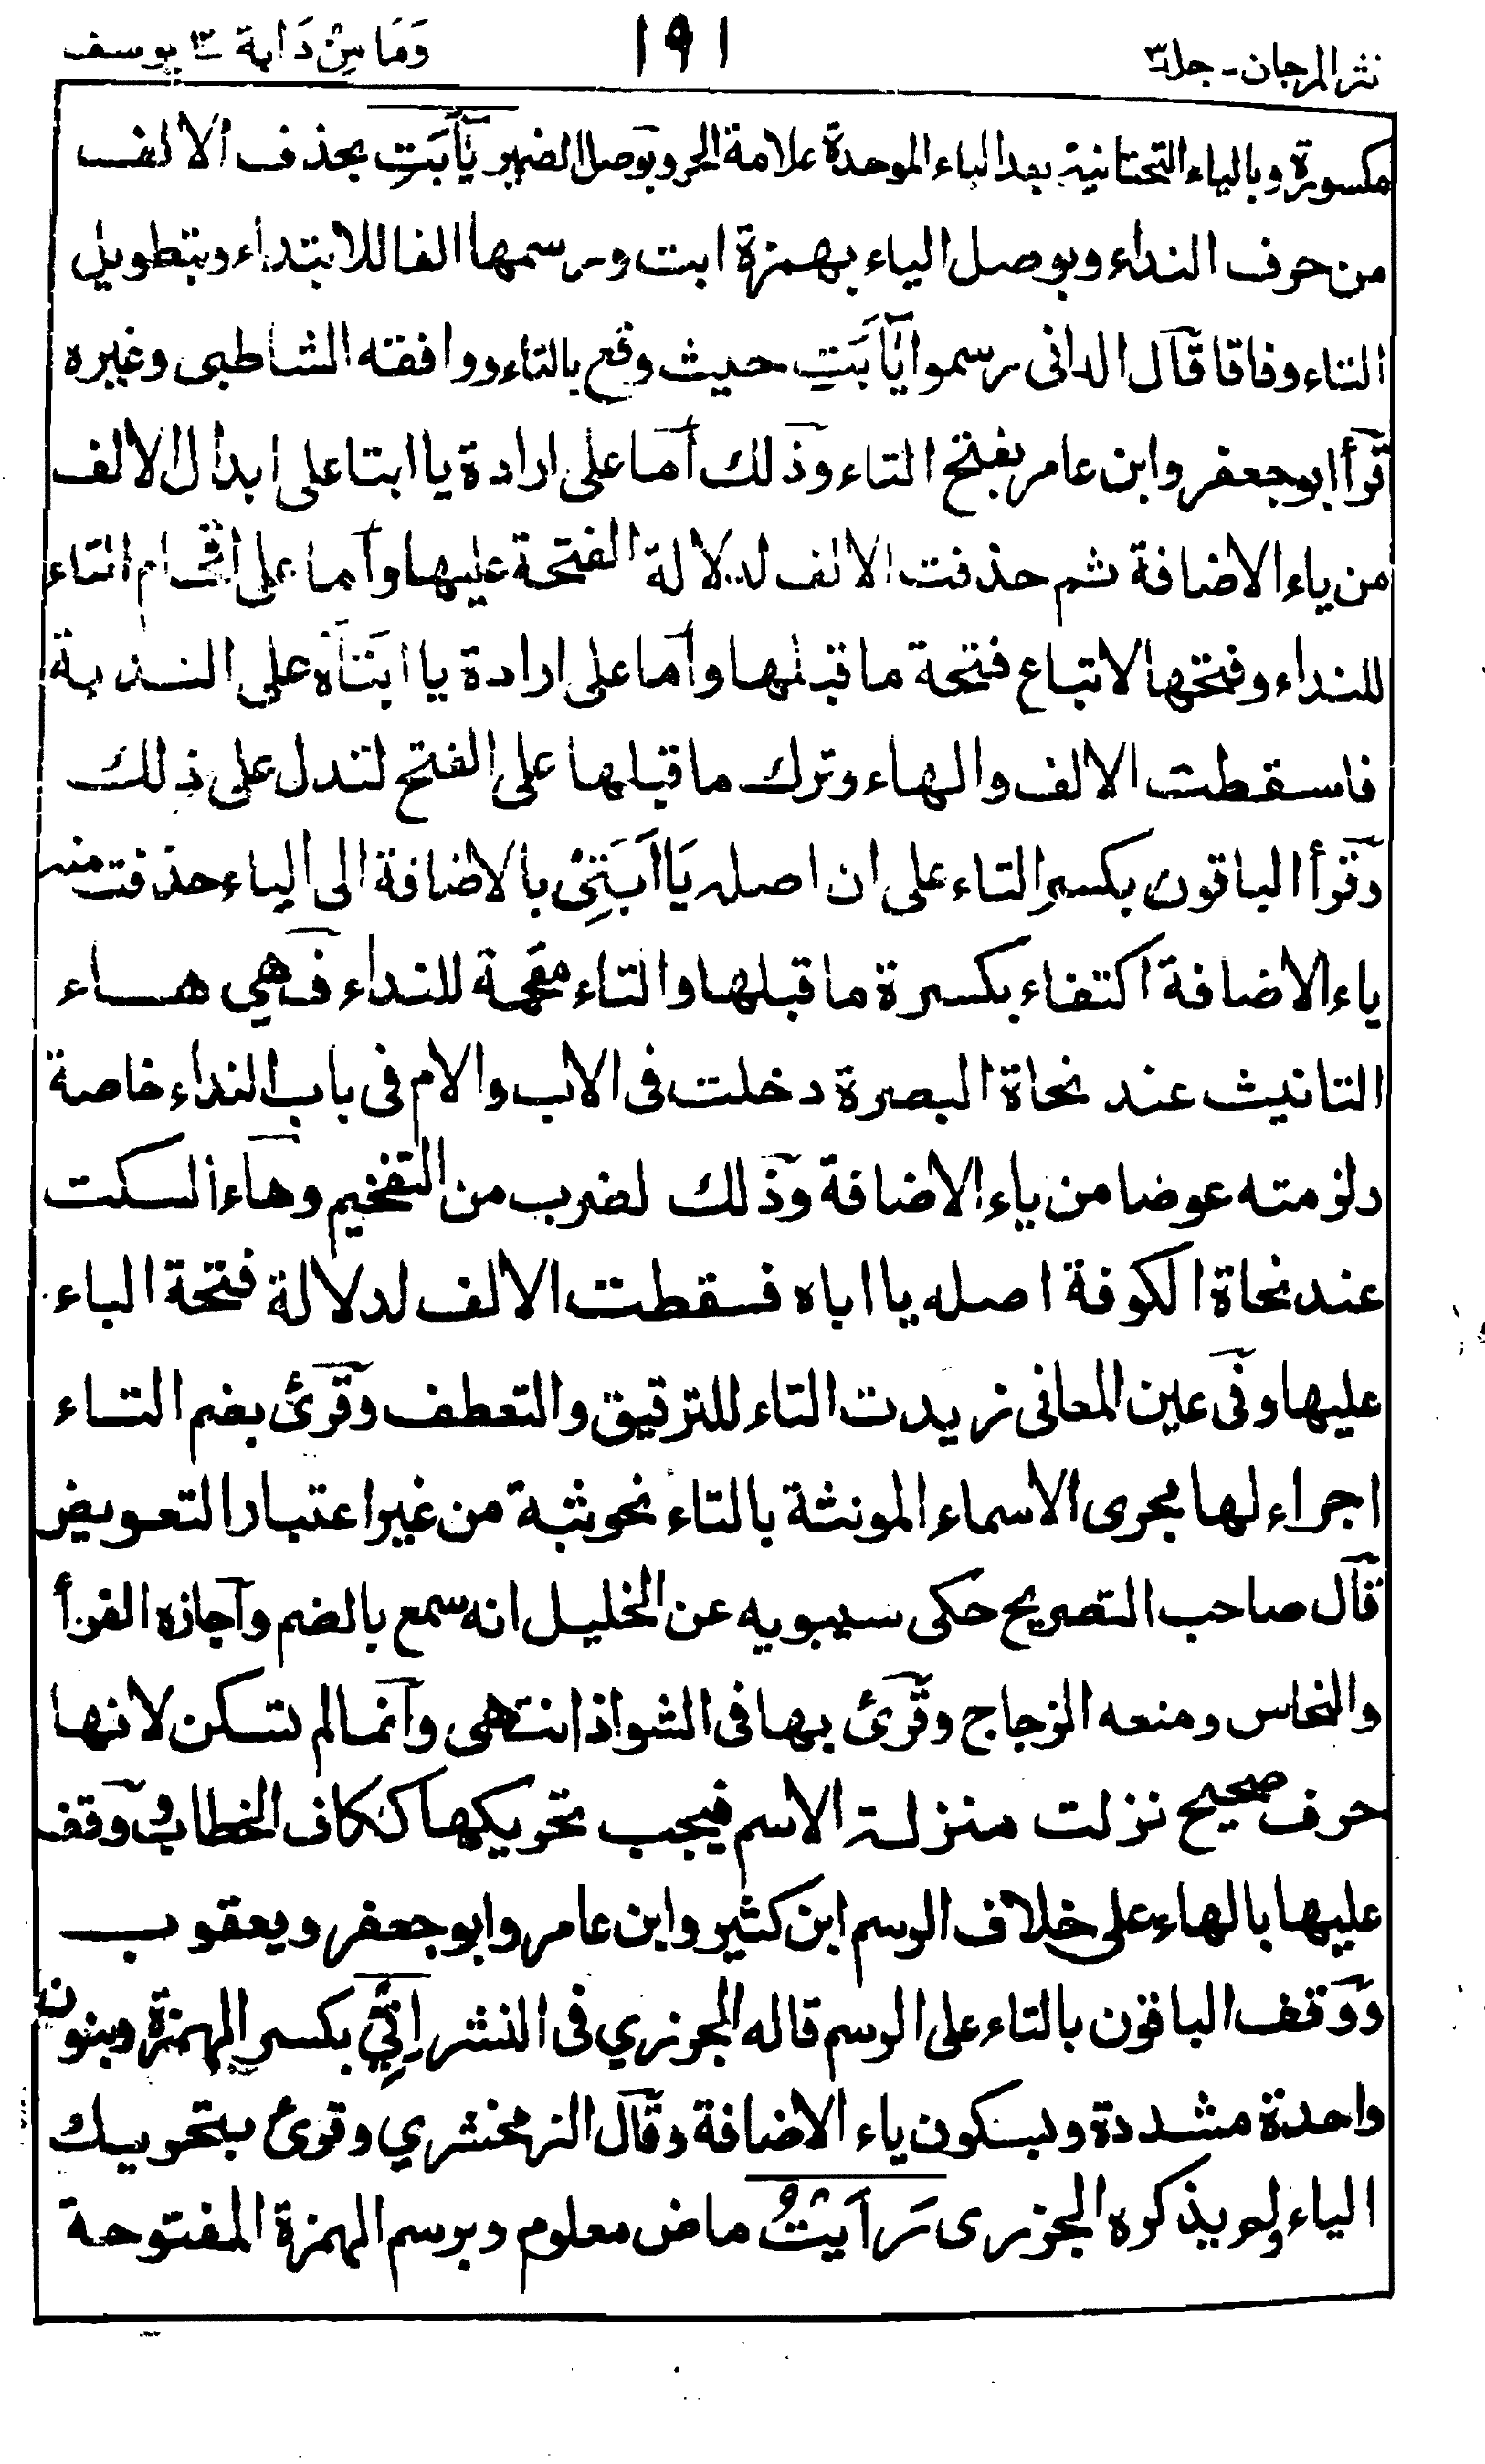 نثر المرجان - جلد ٣
١٩١
وَمَا مِنْ دَابة ١٢ يوسف
مكسورة وبالياء التحتانية بعد الباء الموحدة علامة الجر وبوصل الضمير يَٰٓأَبَتِ بحذف الالف
من حرف النداء وبوصل الياء بهمزة ابت ورسمها الفا للابتداء وبتطويل
التاء وفاقا قال الدانى رسموا يَٰٓأَبَتِ حيث وقع بالتاء ووافقه الشاطبى وغيره
قرأ ابو جعفر وابن عامر بفتح التاء وذلك أما على ارادة يا ابتا على ابدال الالف
من ياء الاضافة ثم حذفت الالف لدلالة الفتحة عليها وأما على اقحام التاء
للنداء وفتحها لاتباع فتحة ما قبلها وأما على ارادة يا ابَتَاه على الندبة
فاسقطت الالف والهاء وترك ما قبلها على الفتح لتدل على ذلك
وقرأ الباقون بكسر التاء على ان اصله يَا اَبَتِىْ بالاضافة الى الياء حذفت منه
ياء الاضافة اكتفاء بكسرة ما قبلها والتاء مقحمة للنداء فهي هاء
التانيث عند نحاة البصرة دخلت فى الاب والام فى باب النداء خاصة
ولزمته عوضا من ياء الاضافة وذلك لضرب من التفخيم وهاء السكت
عند نحاة الكوفة اصله يا اباه فسقطت الالف لدلالة فتحة الباء
عليها وفى عين المعانى زيدت التاء للترقيق والتعطف وقرئ بضم التاء
اجراء لها مجرى الاسماء المونثة بالتاء نحو ثبة من غير اعتبار التعويض
قال صاحب التصريح حكى سيبويه عن الخليل انه سمع بالضم وآجازه الفرأ
والنحاس ومنعه الزجاج وقرئ بها فى الشواذ انتهى وآنما لم تسكن لانها
حرف صحيح نزلت منزلة الاسم فيجب تحريكها ككاف الخطاب ووقف
عليها بالهاء على خلاف الرسم ابن كثير وابن عامر وابو جعفر ويعقوب
ووقف الباقون بالتاء على الرسم قاله الجزري فى النشر اِنِّيْ بكسر الهمزة وبنون
واحدة مشددة وبسكون ياء الاضافة وقال الزمخشري وقرئ بتحريك
الياء ولم يذكره الجزرى رَاَيْتُ ماض معلوم وبرسم الهمزة المفتوحة